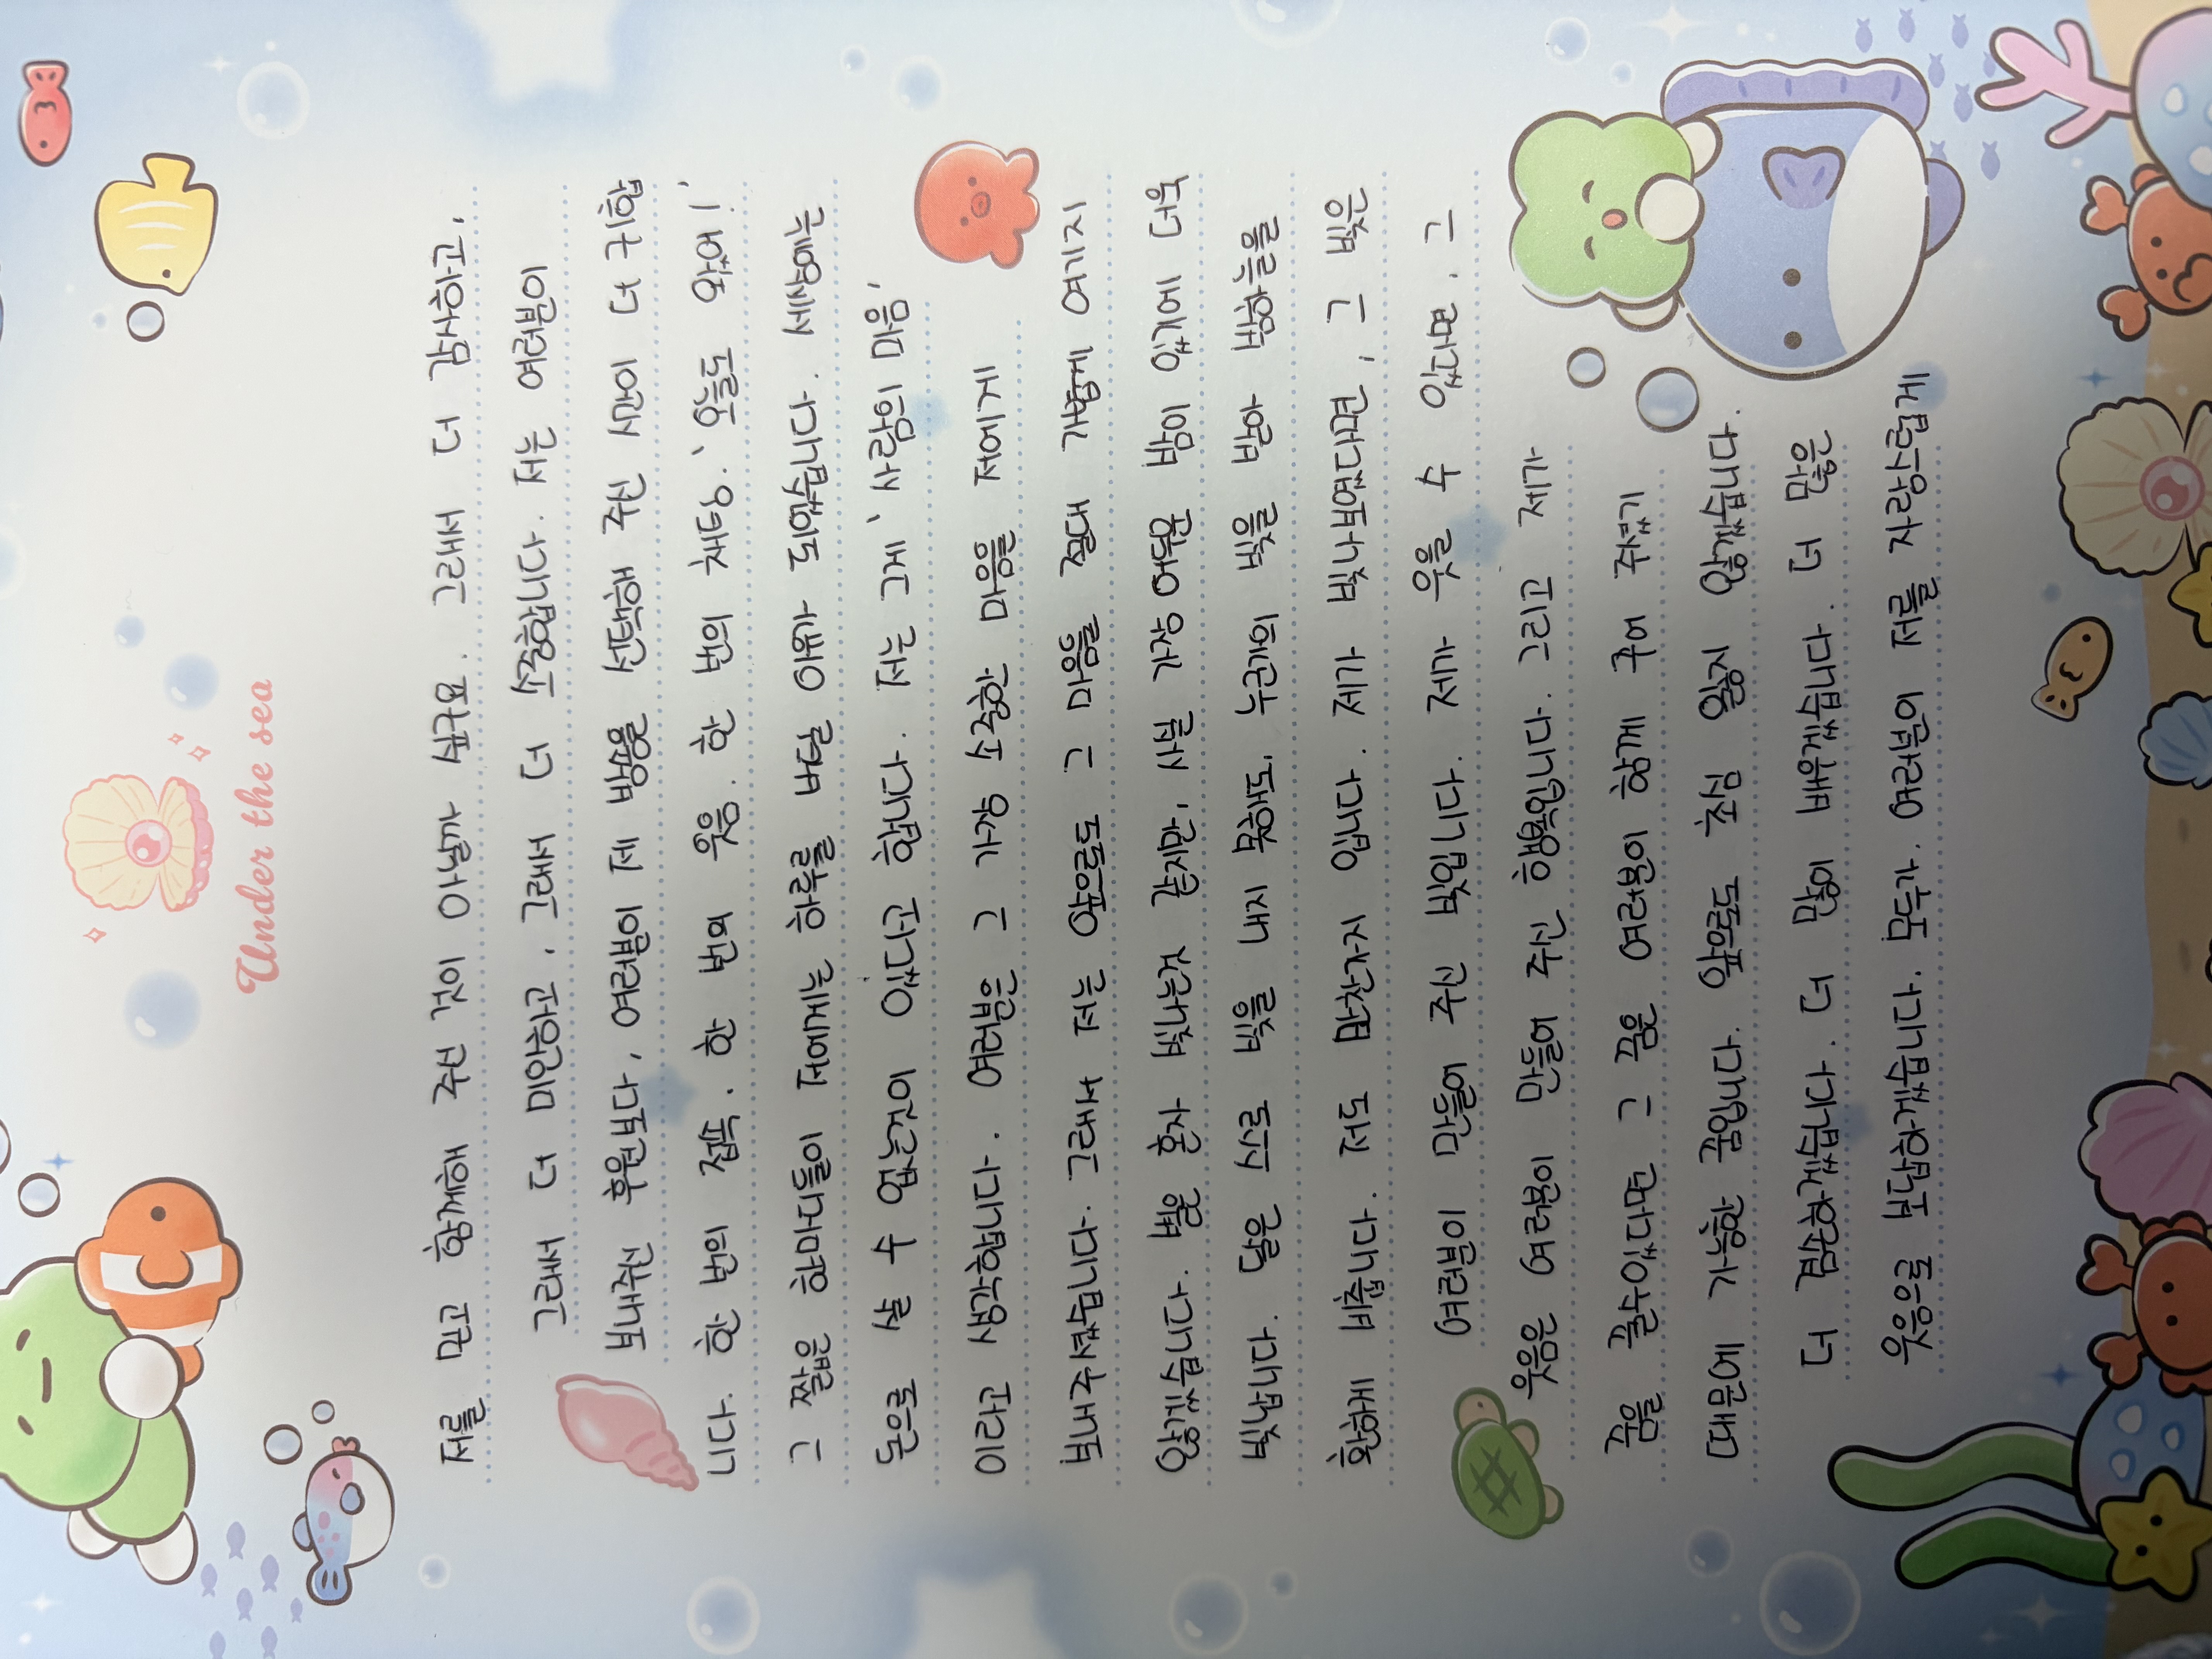 Under the sea
저를 믿고 함께해 주신 것이 아닐까 싶구요. 그래서 더 감사하고,
그래서 더 미안하고, 그래서 더 소중합니다. 저는 여러분이
보내주신 후원보다, 여러분이 제 방송을 선택해 주신 시간이 더 귀합
니다. 한 번의 접속. 한 번의 웃음. 한 번의 채팅. '오늘도 왔어!',
그 짧은 한마디들이 저에게는 하루를 버틸 이유가 되었습니다. 세상에는
돈으로 살 수 없는것이 있다고 합니다. 저는 그게, 사람의 마음,
이라고 생각합니다. 여러분은 그 가장 소중한 마음을 저에게
보내주셨습니다. 그래서 저는 앞으로도 그 마음을 절대 가볍게 여기지
않겠습니다. 별은 혼자 빛나는것 같지만, 사실 가장 어두운 밤이 있기에 더욱
빛납니다. 달은 스스로 빛을 내지 못해도, 누군가의 빛을 받아 밤하늘을
환하게 비춥니다. 저도 마찬가지 입니다. 제가 빛나보였다면, 그 빛은
여러분이 만들어 주신 빛입니다. 제가 웃을 수 있었다면, 그
웃음은 여러분이 만들어 주신 행복입니다. 그리고 제가
꿈을 꿀수있었다면 그 꿈은 여러분이 함께 꾸어 주셨기
때문에 가능한 꿈입니다. 앞으로도 초심 잃지 않겠습니다.
더 겸손하겠습니다. 더 많이 배우겠습니다. 더 많은
웃음으로 보답하겠습니다. 누군가, 여러분이 저를 자랑스럽게